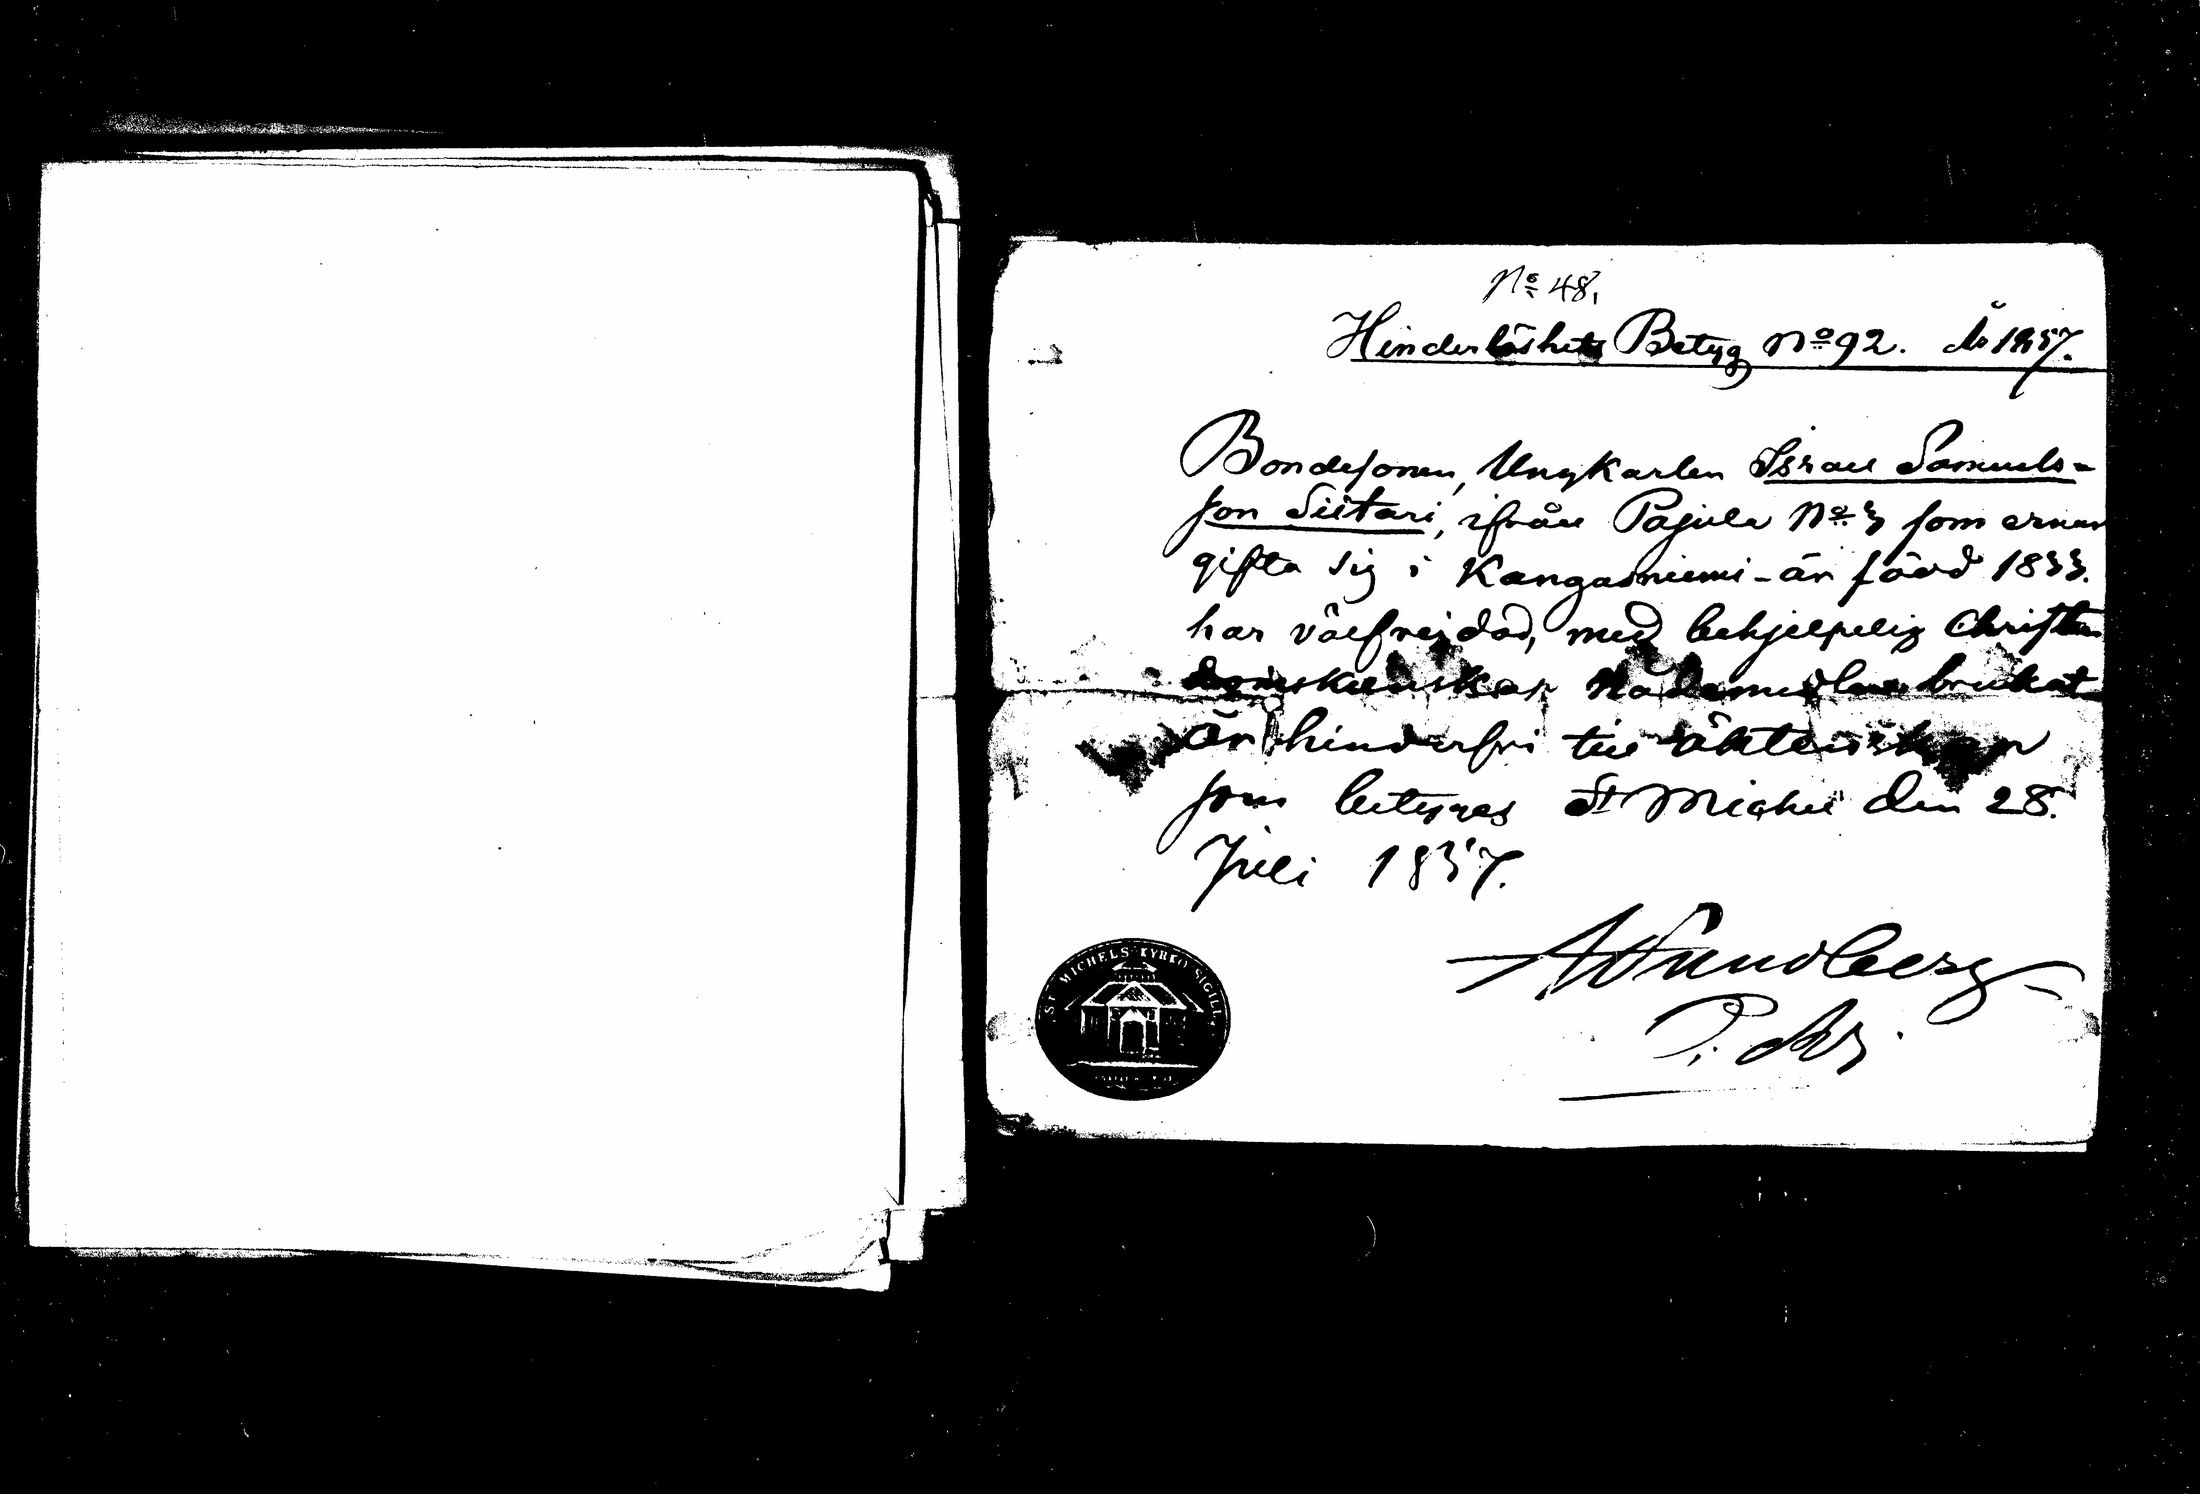 No 48.
Hinderlöshets Betyg No 92. År 1857.
Bondesonen, Ungkarlen Israel Samuels-
son Siitari, ifrån Pajula No 3 som ernar
gifta sig i Kangasniemi - är född 1833.
har välfrejdad, med behjelpelig Christen
domskunskap Nådemedlen brukat
är hinderfri till äktenskap
som betygas St Michel den 28.
Juli 1857.
A Sundberg
ST. MICHELS KYRKO SIGILL.